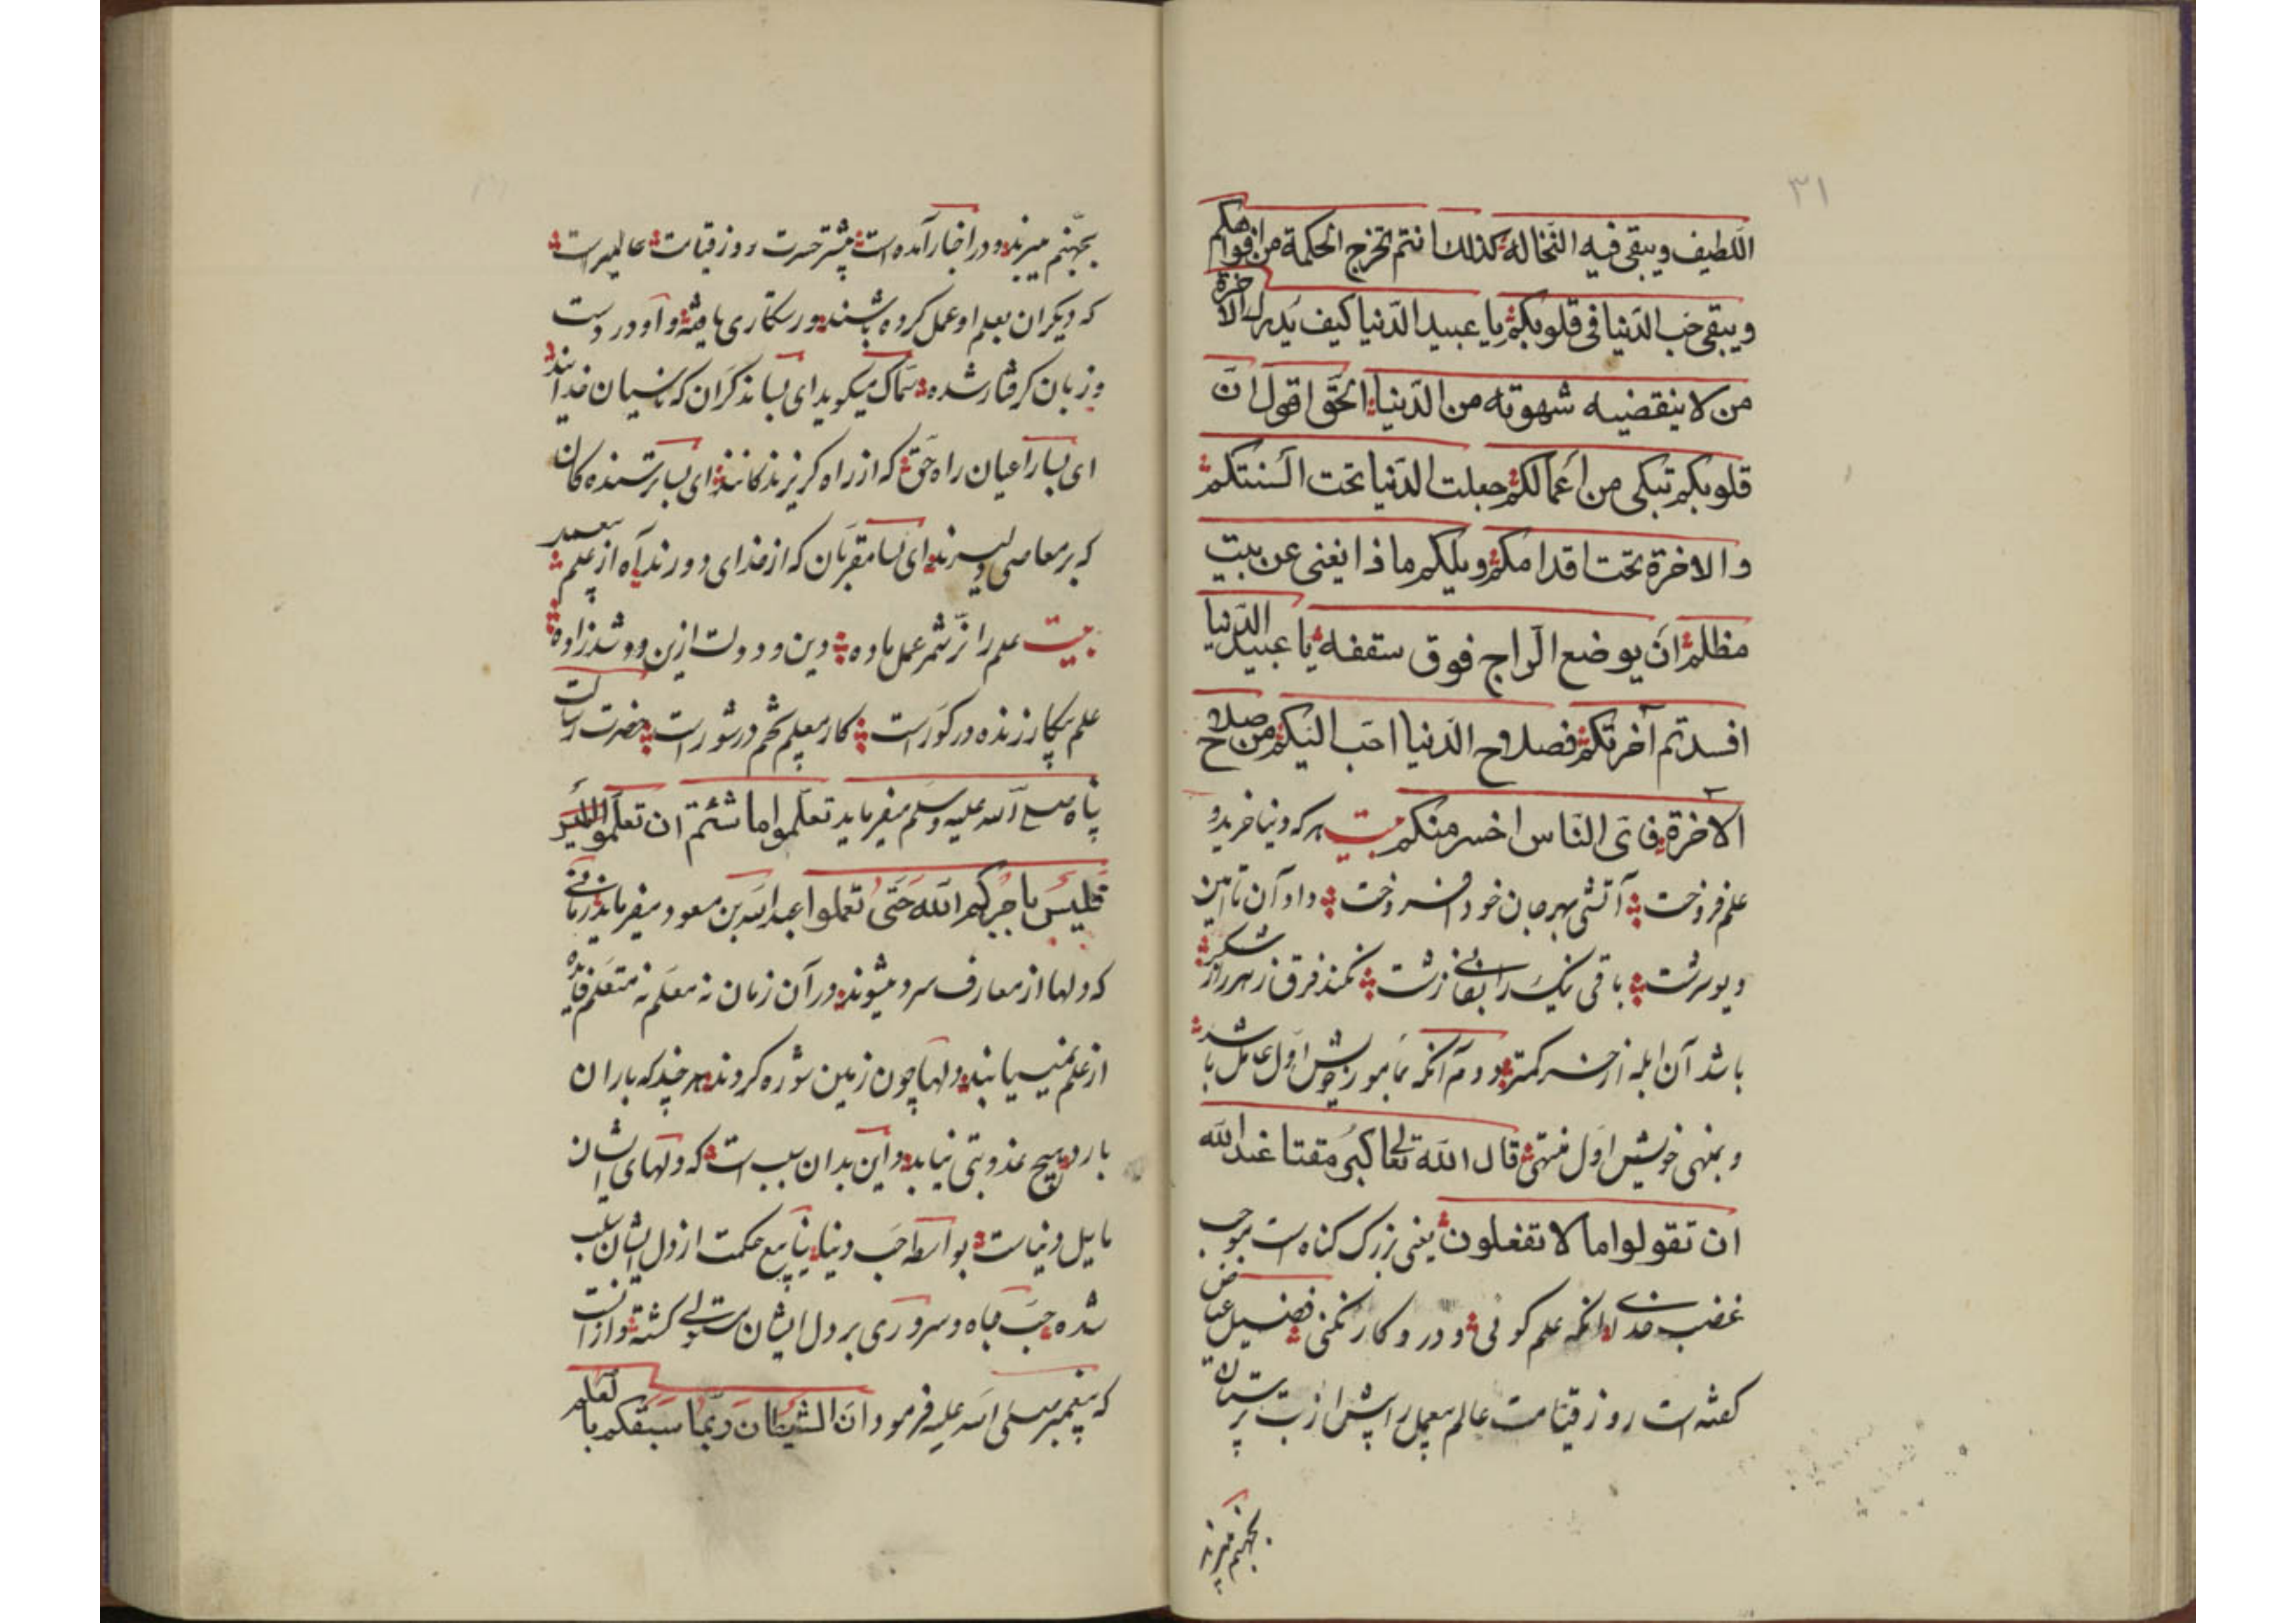 ۳۱
اللطیف ویبقی فیه النخاله کذلک انتم تخرج الحکمة من افواهکم
ویبقی حب الدنیا فی قلوبکم یا عبید الدنیا کیف یدرک الاخرة
من لا ینقضیه شهوته من الدنیا الحق اقول ان
قلوبکم تبکی من أعمالکم جعلت الدنیا تحت السنتکم
والاخرة تحت اقدامکم ویلکم ماذا یغنی عن بیت
مظلم ان یوضع السراج فوق سقفه یا عبید الدنیا
افسدتم آخرتکم فصلاح الدنیا احب الیکم من صلاح
الاخرة فای الناس اخسر منکم بیت هرکه دنیا خرید و
علم فروخت آتشی بهر جان خود افروخت داد آن تا این
دیو سرشت باقی نیک را بفانی زشت نکند فرق زهر را ز شکر
باشد آن ابله از خسر کمتر دوم آنکه بمأمور خویش اول عامل باشد
و بمنهی خویش اول منتهی قال الله تعالی کبر مقتا عند الله
ان تقولوا ما لا تفعلون یعنی بزرک کناه است موجب
غضب خدای آنکه علم کوئی و در و کار نکنی فضیل عیاض
کفته است روز قیامت عالم بیعمل را پیش از بت پرستان
بجهنم میبرند
بجهنم میبرند و در اخبار آمده است بیشتر حسرت روز قیامت عالمیراست
که دیکران بعلم او عمل کرده باشند و رستکاری یافته و او در دست
و زبان کرفتار شده سماک میکوید ای بسا مذکران که ناسیان خدایند
ای بسا راعیان راه حق که از راه کریزندکانند ای بسا ترسندهکان
که بر معاصی دلیرند ای بسا مقربان که از خدای دورند آه از علم بیعمل
بیت علم را نز ثمر عمل باده دین و دولت ازین دو شد زاده
علم بیکار زنده در کور است کار بیعلم تخم در شور است حضرت رسالت
پناه صلی الله علیه وسلم میفرماید تعلموا ما شئتم ان تعلموا
فلیس یاجرکم الله حتی تعملوا عبدالله بن مسعود میفرماید زمانی
که دلها از معارف سرد میشوند در آن زمان نه معلم نه متعلم فایده
از علم نمییابند دلها چون زمین شوره کردند هرچند که باران
بارد هیچ عذوبتی نیابد و این بدان سبب است که دلهای ایشان
مایل دنیاست بواسطه حب دنیا ینابیع حکمت از دل ایشان سلب
شده حب جاه و سروری بر دل ایشان مستولی کشته و از انست
که پیغمبر صلی الله علیه فرمود ان الشیطان ربما سبقکم بالعلم